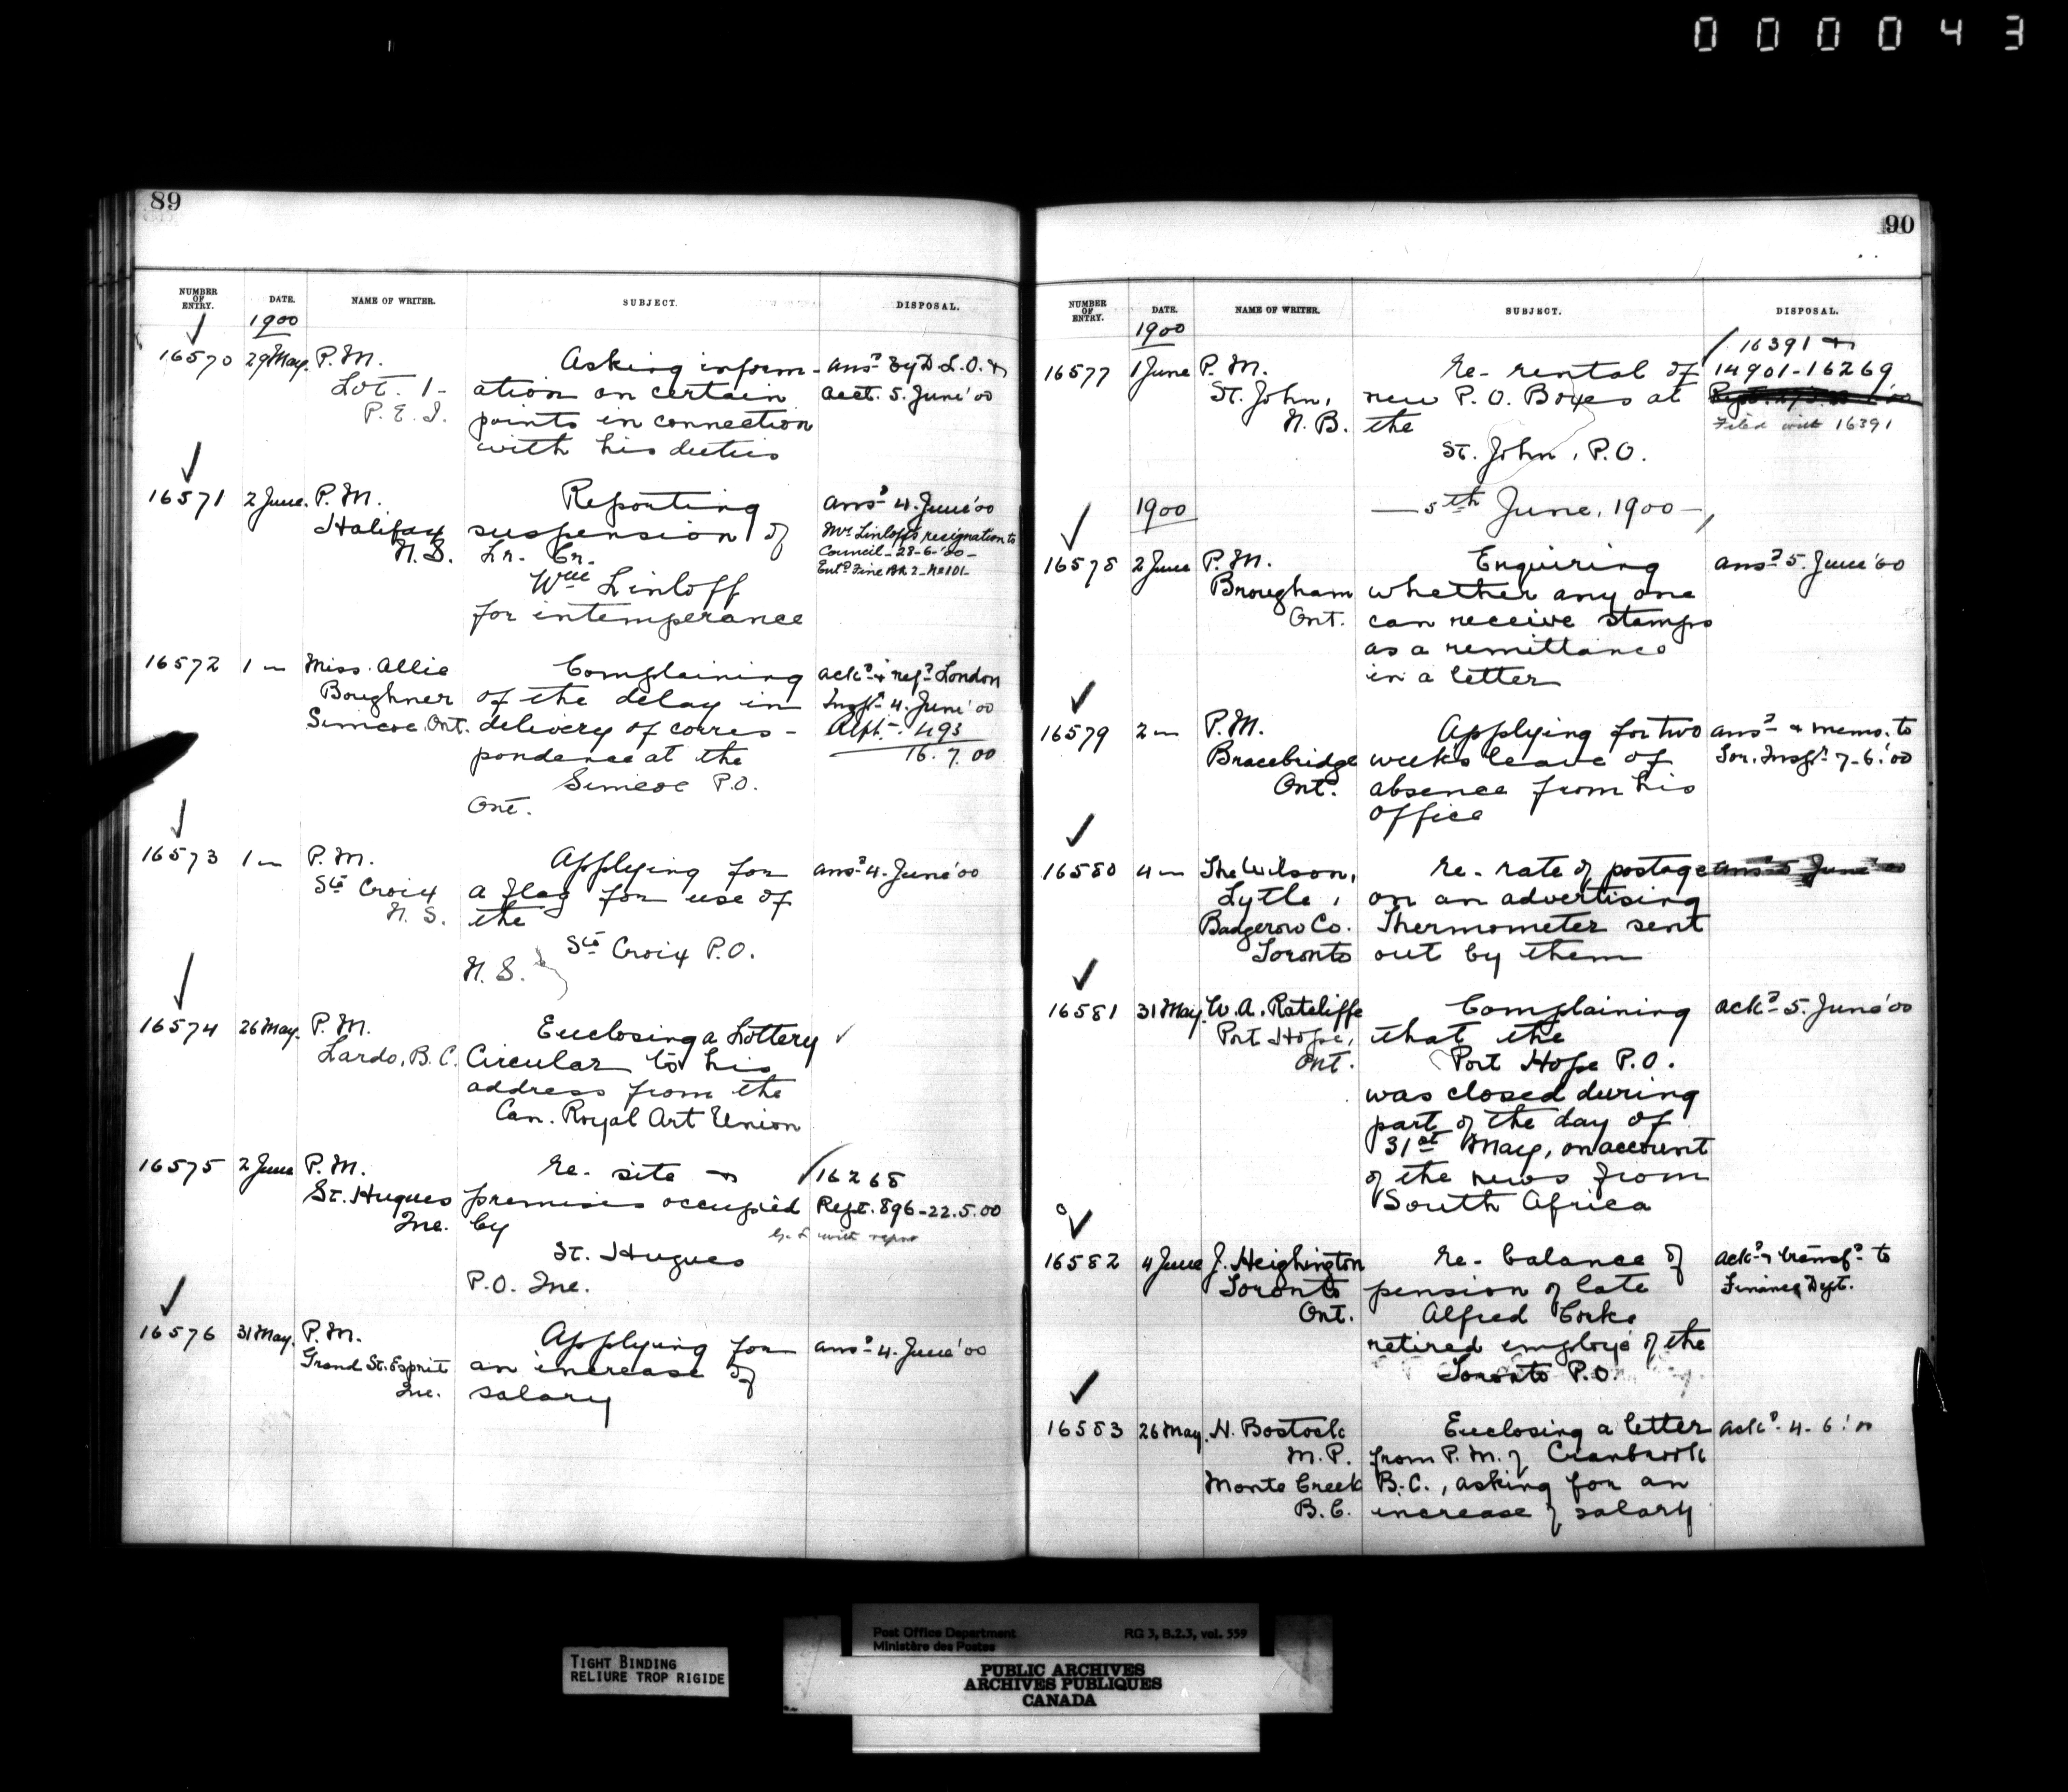 000043
89
NUMBER OF ENTRY. DATE. NAME OF WRITER. SUBJECT. DISPOSAL.
1900
16570 29 May. P.M. Asking inform- ansd by D.L.O. &
Lot. 1- ation on certain acct. 5. June '00
P.E.I. points in connection
with his duties
16571 2 June. P.M. Reporting ansd 4. June '00
Halifax suspension of Mr. Linloff's resignation to
N.S. Lr. Cr. Council - 28-6-'00-
Wm Linloff Entd Fine Bk 2 - No 101-
for intemperance
16572 1 " Miss. Allie Complaining ackd & refd London
Boughner of the delay in Inspr 4. June '00
Simcoe. Ont. delivery of corres- 493
pondence at the 16.7.00
Simcoe P.O.
Ont.
16573 1 " P.M. Applying for ansd 4. June '00
Ste Croix a flag for use of
N.S. the
Ste Croix P.O.
N.S.
16574 26 May. P.M. Enclosing a Lottery
Lardo, B.C. Circular to his
address from the
Can. Royal Art Union
16575 2 June P.M. re- site & 16268
St. Hugues premises occupied Rept. 896-22.5.00
Que. by with
St. Hugues
P.O. Que.
16576 31 May. P.M. Applying for ansd 4. June '00
Grand St. Esprit an increase of
Que. salary
90
NUMBER OF ENTRY. DATE. NAME OF WRITER. SUBJECT. DISPOSAL.
1900
16391 &
16577 1 June P.M. re- rental of 14901-16269
St. John, new P.O. Boxes at
N.B. the Filed with 16391
St. John, P.O.
1900 — 5th June, 1900 —
16578 2 June P.M. Enquiring ansd 5. June '00
Brougham whether any one
Ont. can receive stamps
as a remittance
in a letter
16579 2 " P.M. Applying for two ansd & memo. to
Bracebridge weeks leave of Tor. Inspr 7-6-'00
Ont. absence from his
office
16580 4 " The Wilson, re- rate of postage ansd 5 June '00
Lytle, on an advertising
Badgerow Co. Thermometer sent
Toronto out by them
16581 31 May. W.A. Ratcliffe Complaining ackd 5. June '00
Port Hope, that the
Ont. Port Hope P.O.
was closed during
part of the day of
31st May, on account
of the news from
South Africa
16582 4 June J. Heighington re- balance of ackd & transfd to
Toronto pension of late Finance Dept.
Ont. Alfred Corke
retired employé of the
Toronto P.O.
16583 26 May. H. Bostock Enclosing a letter ackd 4-6-'00
M.P. from P.M. of Cranbrook
Monte Creek B.C., asking for an
B.C. increase of salary
TIGHT BINDING
RELIURE TROP RIGIDE
Post Office Department RG 3, B.2.3, vol. 559
Ministère des Postes
PUBLIC ARCHIVES
ARCHIVES PUBLIQUES
CANADA